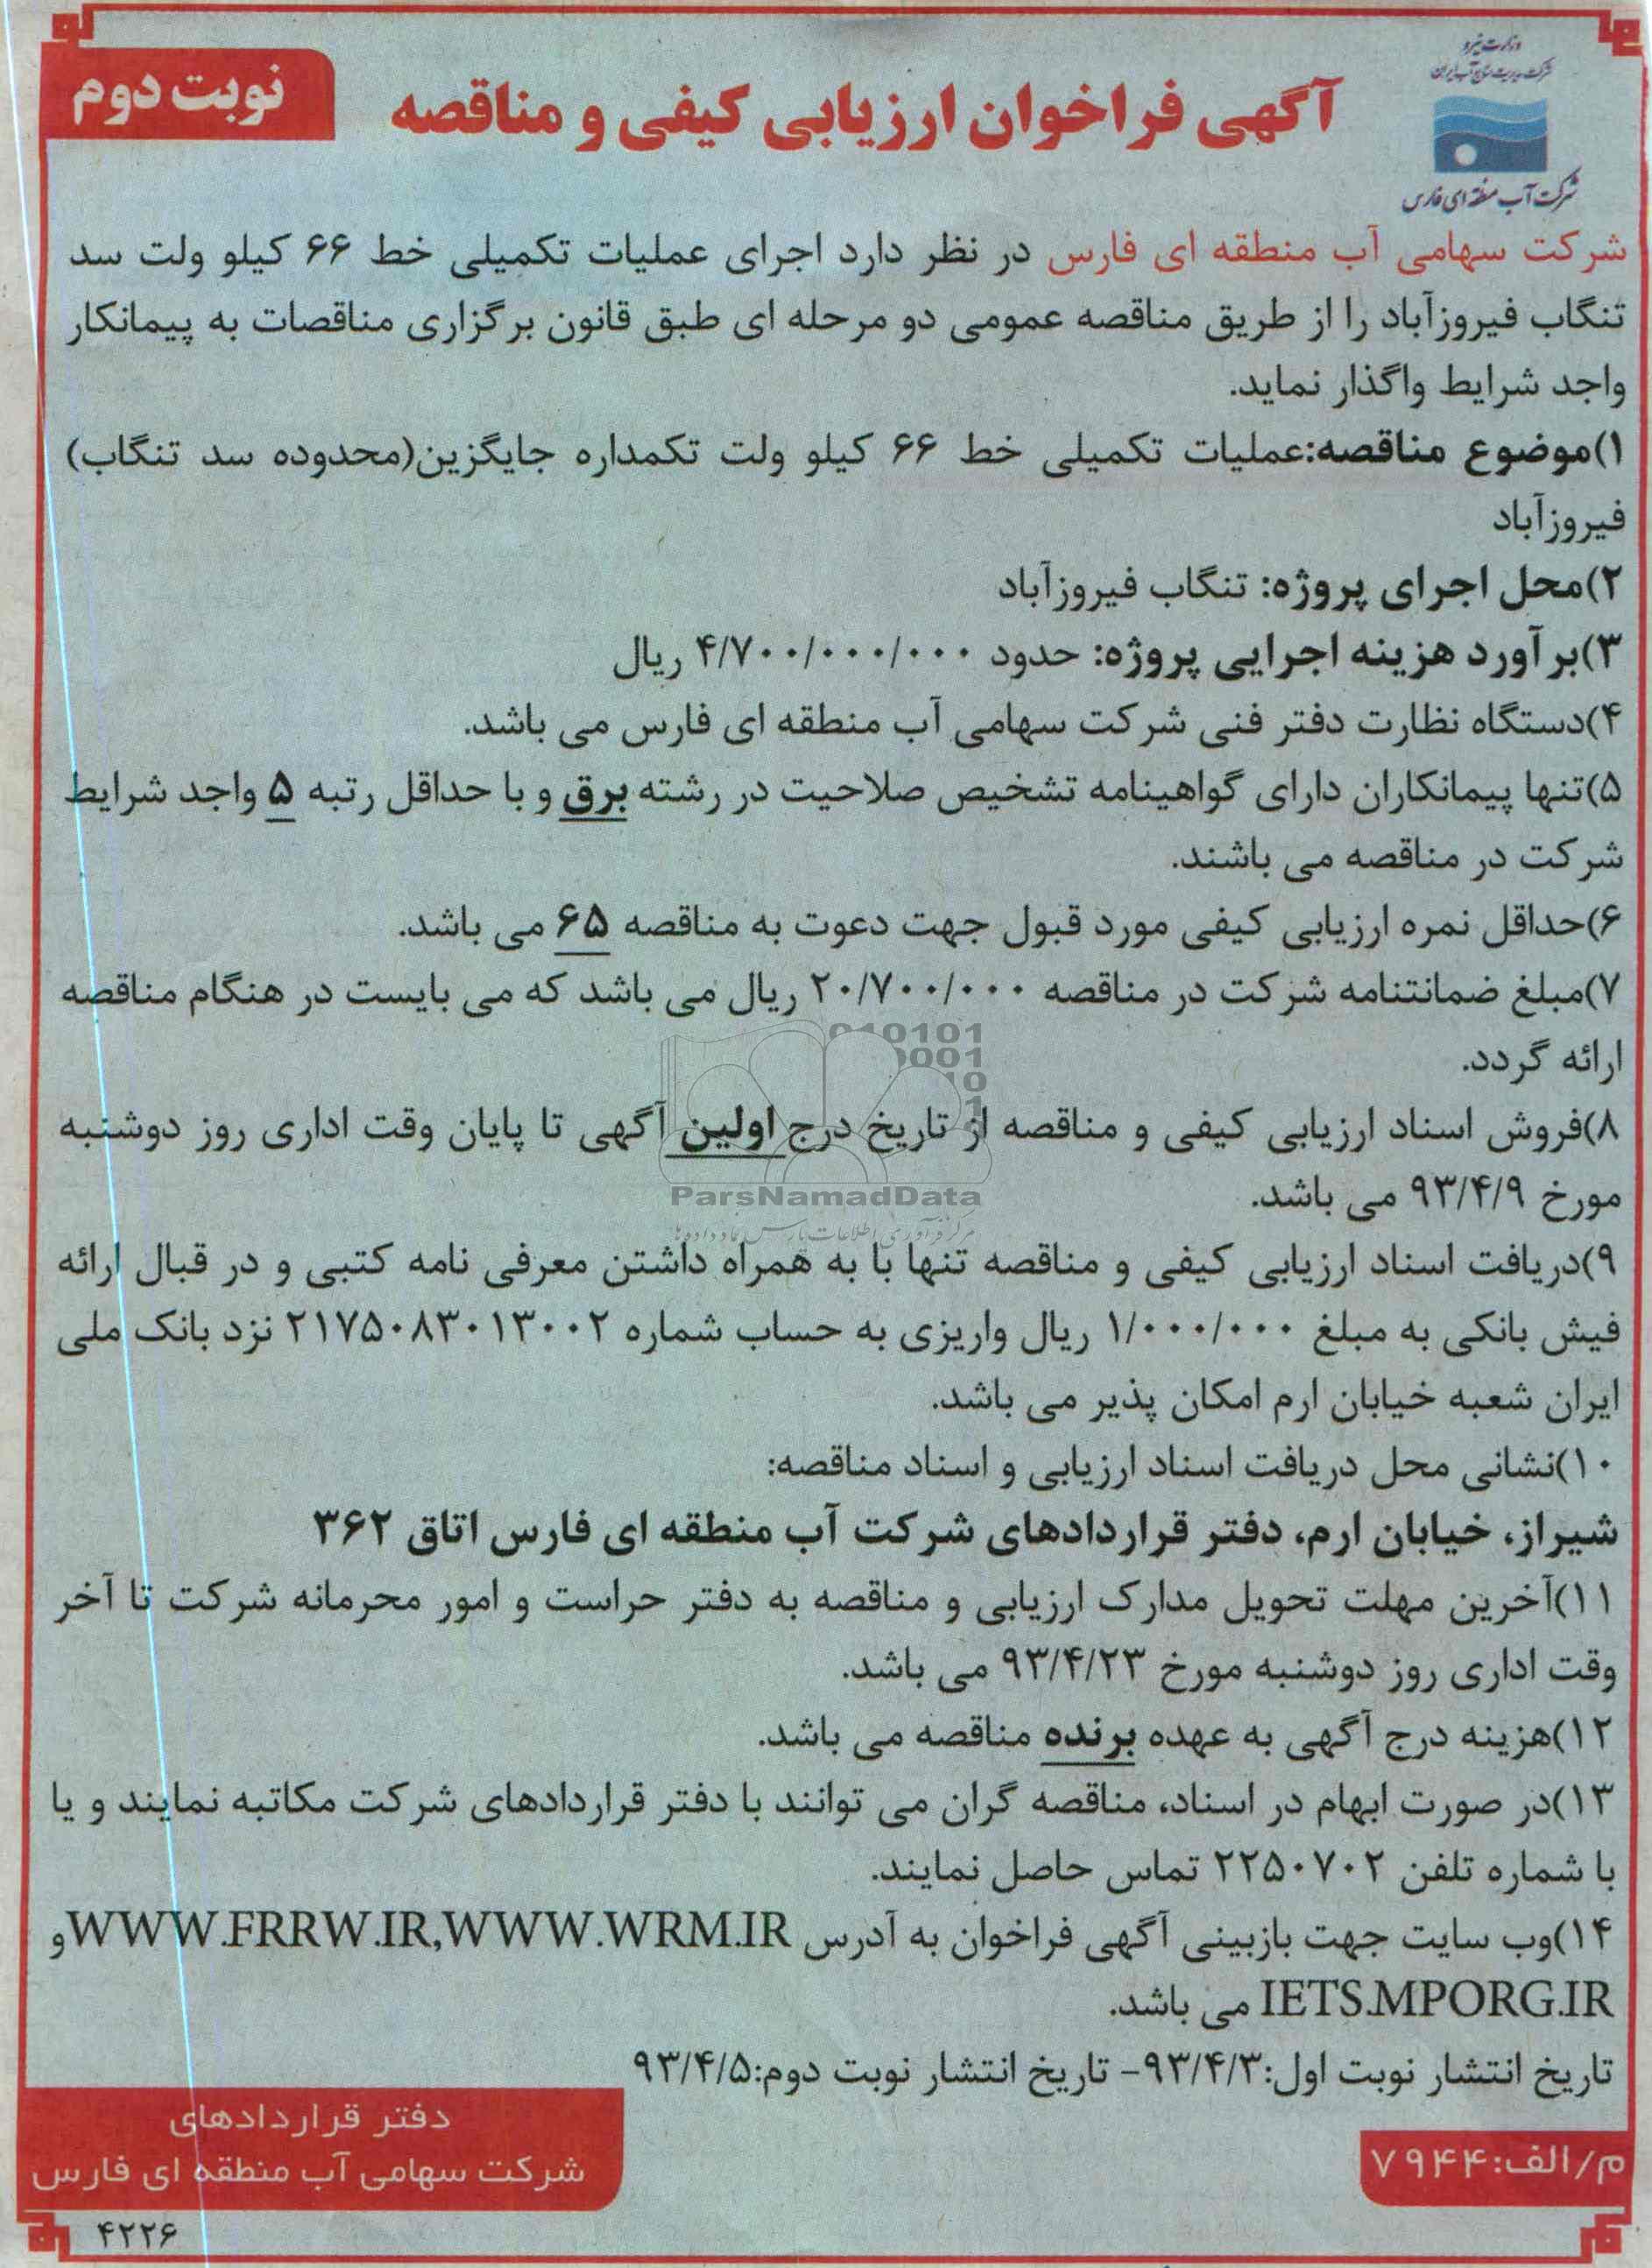 وزارت نیرو
شرکت مدیریت منابع آب ایران
شرکت آب منطقه ای فارس
نوبت دوم
آگهی فراخوان ارزیابی کیفی و مناقصه
شرکت سهامی آب منطقه ای فارس در نظر دارد اجرای عملیات تکمیلی خط ۶۶ کیلو ولت سد
تنگاب فیروزآباد را از طریق مناقصه عمومی دو مرحله ای طبق قانون برگزاری مناقصات به پیمانکار
واجد شرایط واگذار نماید.
۱)موضوع مناقصه:عملیات تکمیلی خط ۶۶ کیلو ولت تکمداره جایگزین(محدوده سد تنگاب)
فیروزآباد
۲)محل اجرای پروژه: تنگاب فیروزآباد
۳)برآورد هزینه اجرایی پروژه: حدود ۴/۷۰۰/۰۰۰/۰۰۰ ریال
۴)دستگاه نظارت دفتر فنی شرکت سهامی آب منطقه ای فارس می باشد.
۵)تنها پیمانکاران دارای گواهینامه تشخیص صلاحیت در رشته برق و با حداقل رتبه ۵ واجد شرایط
شرکت در مناقصه می باشند.
۶)حداقل نمره ارزیابی کیفی مورد قبول جهت دعوت به مناقصه ۶۵ می باشد.
۷)مبلغ ضمانتنامه شرکت در مناقصه ۲۰/۷۰۰/۰۰۰ ریال می باشد که می بایست در هنگام مناقصه
ارائه گردد.
۸)فروش اسناد ارزیابی کیفی و مناقصه از تاریخ درج اولین آگهی تا پایان وقت اداری روز دوشنبه
مورخ ۹۳/۴/۹ می باشد.
ParsNamadData
مرکز فرآوری اطلاعات پارس نماد داده ها
۹)دریافت اسناد ارزیابی کیفی و مناقصه تنها با به همراه داشتن معرفی نامه کتبی و در قبال ارائه
فیش بانکی به مبلغ ۱/۰۰۰/۰۰۰ ریال واریزی به حساب شماره ۲۱۷۵۰۸۳۰۱۳۰۰۲ نزد بانک ملی
ایران شعبه خیابان ارم امکان پذیر می باشد.
۱۰)نشانی محل دریافت اسناد ارزیابی و اسناد مناقصه:
شیراز، خیابان ارم، دفتر قراردادهای شرکت آب منطقه ای فارس اتاق ۳۶۲
۱۱)آخرین مهلت تحویل مدارک ارزیابی و مناقصه به دفتر حراست و امور محرمانه شرکت تا آخر
وقت اداری روز دوشنبه مورخ ۹۳/۴/۲۳ می باشد.
۱۲)هزینه درج آگهی به عهده برنده مناقصه می باشد.
۱۳)در صورت ابهام در اسناد، مناقصه گران می توانند با دفتر قراردادهای شرکت مکاتبه نمایند و یا
با شماره تلفن ۲۲۵۰۷۰۲ تماس حاصل نمایند.
۱۴)وب سایت جهت بازبینی آگهی فراخوان به آدرس WWW.FRRW.IR,WWW.WRM.IR و
IETS.MPORG.IR می باشد.
تاریخ انتشار نوبت اول:۹۳/۴/۳- تاریخ انتشار نوبت دوم:۹۳/۴/۵
دفتر قراردادهای
شرکت سهامی آب منطقه ای فارس
م/الف:۷۹۴۴
۴۲۲۶